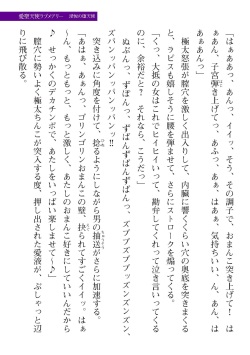 愛聖天使ラブメアリー 淫悦の堕天使
「はぁああっ、あんっ、イイッ、そう、その調子で、おまんこ突き上げてー！　は
ぁぁんっ、子宮弾き上げてっ、あふっ、あぁ、はぁぁ、気持ちいい、ん、あん、は
ぁぁあんっ」
極太怒張が膣穴を激しく出入りして、内臓に響くくらい穴の奥底を突きまくる
と、ラビスも嬉しそうに腰を弾ませて、さらにストロークを煽ってくる。
「くっ、大抵の女はこれでヒイヒイいって、勘弁してくれって泣き言いってくる
のに、余裕だと？　それなら、こうだ！」
ぬぷんっ、ずぽんっ、ずぱんずぱんずぱんっ、ズブブズブブッズンズンズン、
ズバンッバンッバンッバンッ!!
突き込みに角度を付けて、捻るようにしながら男の抽送がさらに加速する。
「あはぁ、あぁぁんっ、ゴリンゴリンおまんこの壁、抉られてすごくイイッ、はぁ
～ん、もっともっと、もっと激しく、あたしのおまんこ好きにしていいんだから
♪　せっかくのデカチンポで、あたしをいっぱい楽しませて～♪」
膣穴に勢いよく極太ちんこが突入する度、押し出された愛液が、ぶしゃっと辺
りに飛び散る。